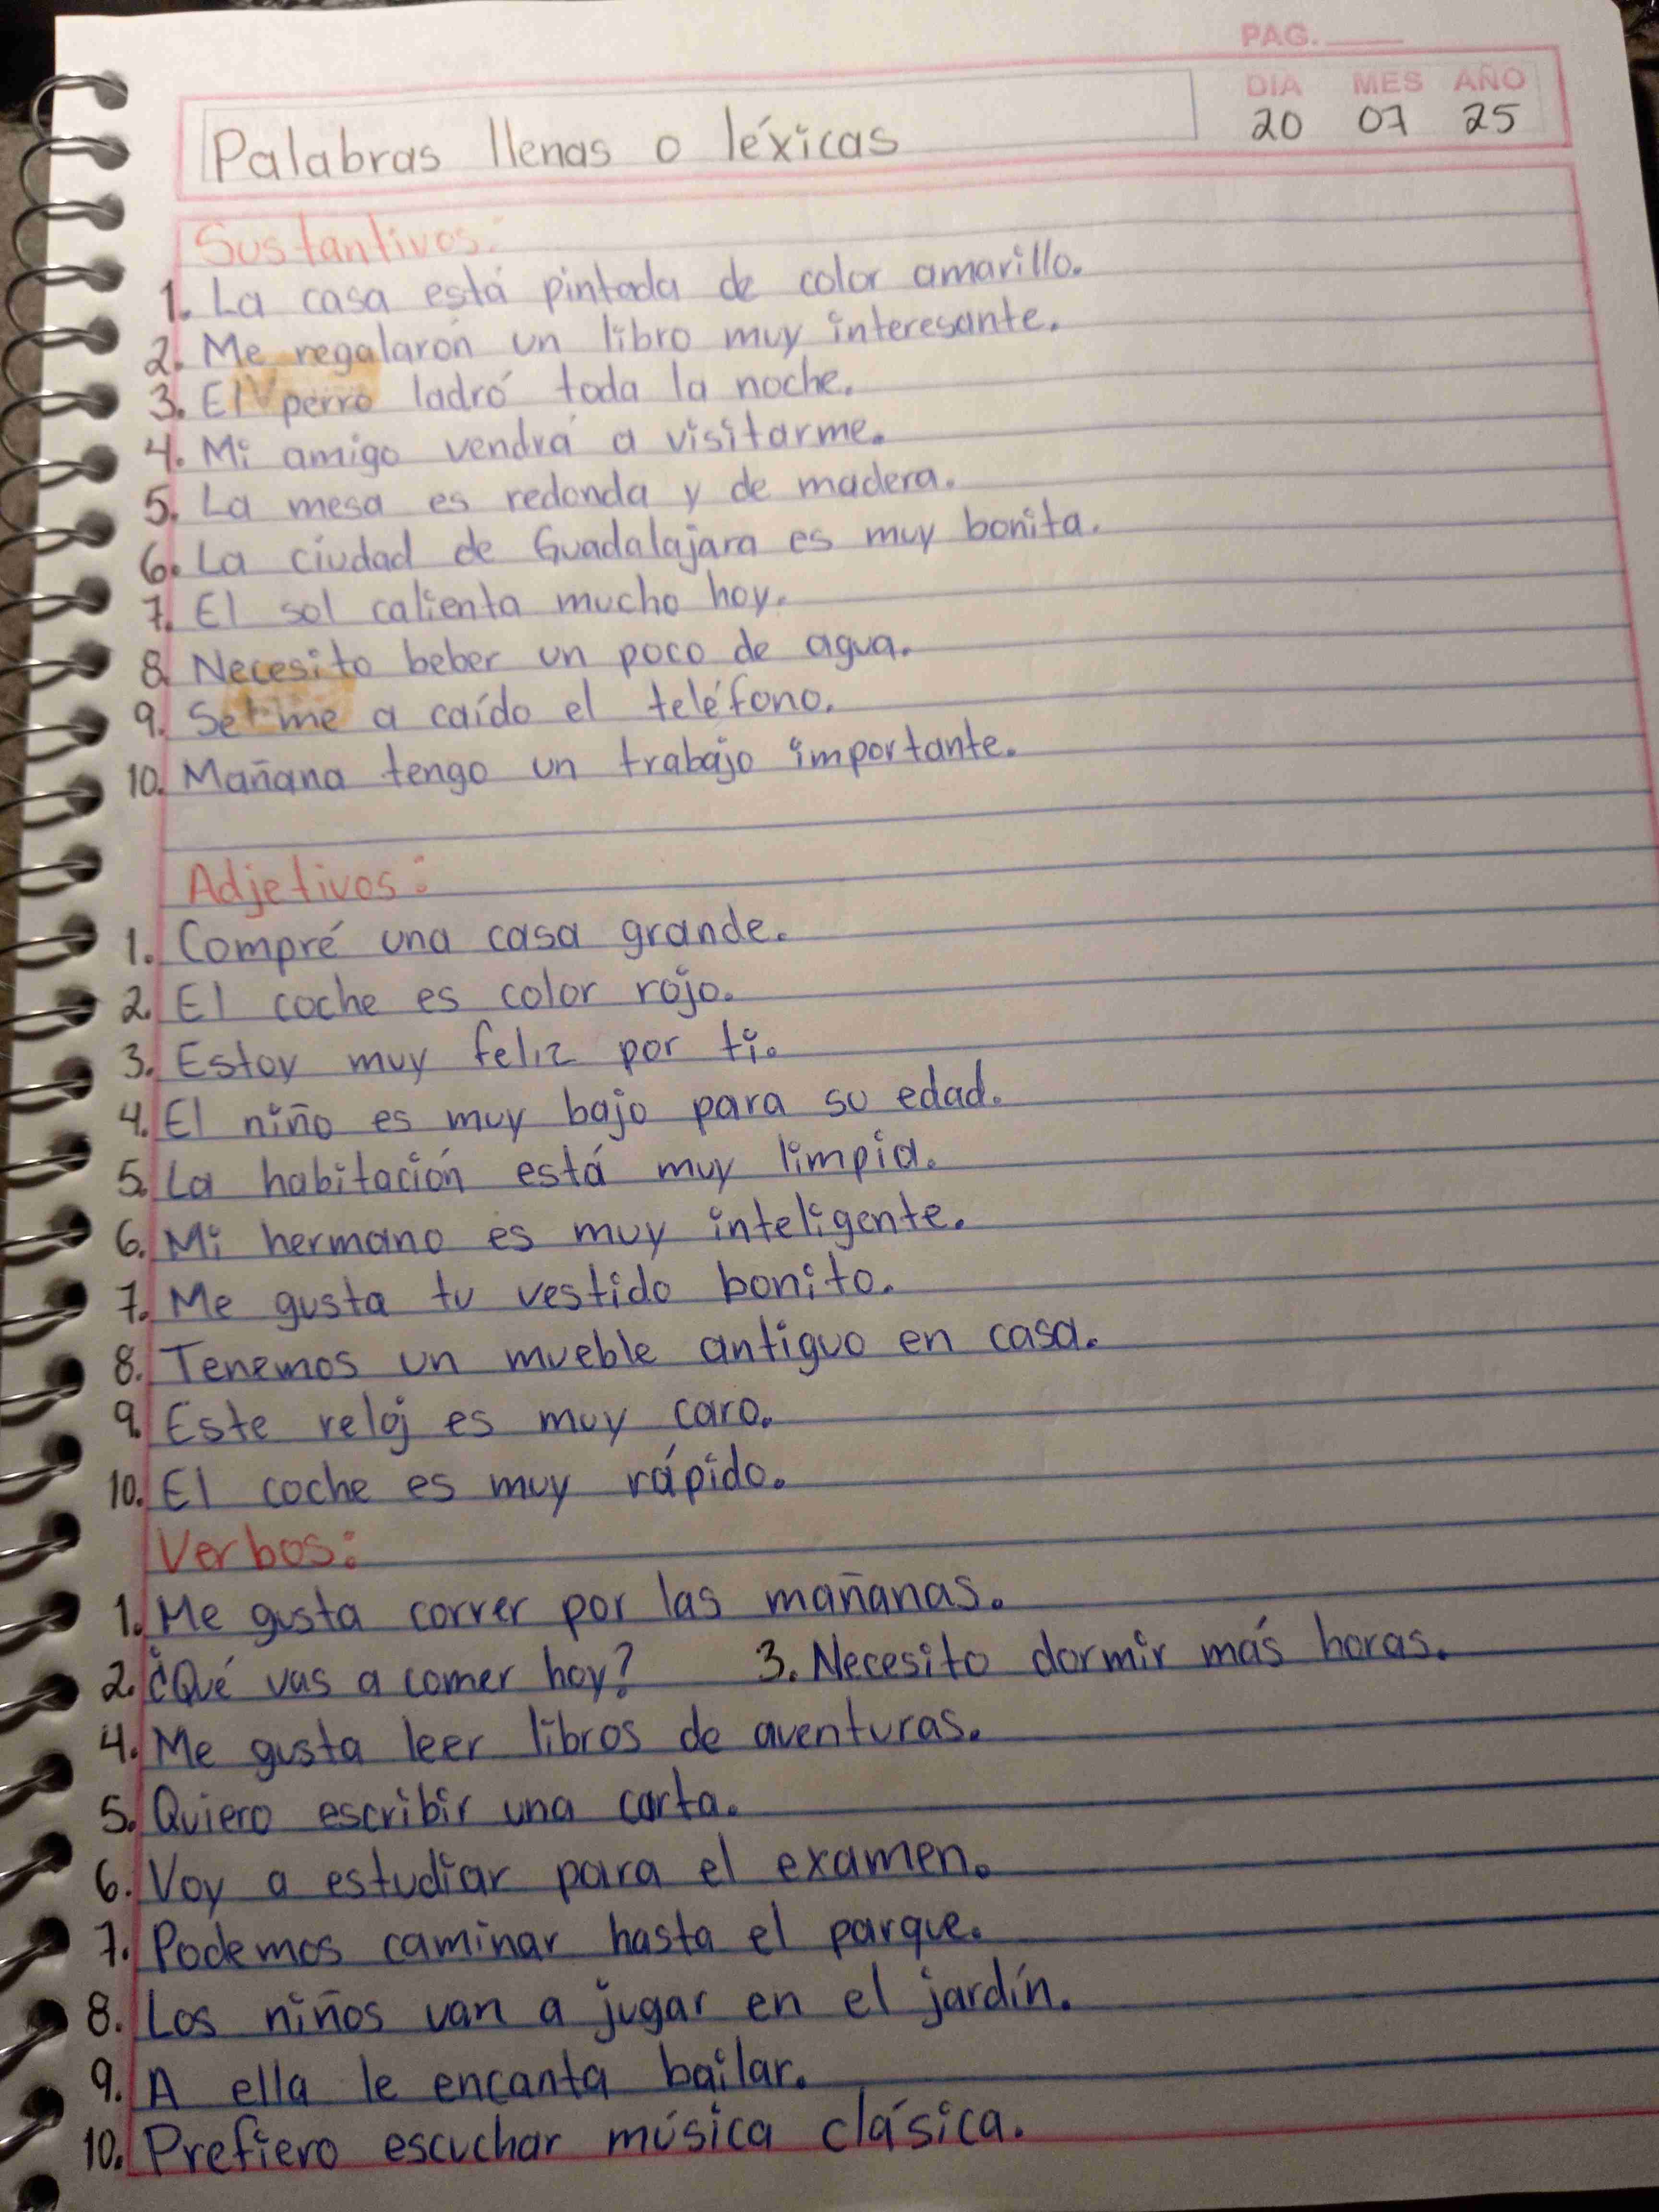 PAG.
DIA MES AÑO
Palabras llenas o léxicas 20 07 25
Sustantivos:
1. La casa está pintada de color amarillo.
2. Me regalaron un libro muy interesante.
3. El perro ladró toda la noche.
4. Mi amigo vendrá a visitarme.
5. La mesa es redonda y de madera.
6. La ciudad de Guadalajara es muy bonita.
7. El sol calienta mucho hoy.
8. Necesito beber un poco de agua.
9. Se me a caído el teléfono.
10. Mañana tengo un trabajo importante.
Adjetivos:
1. Compré una casa grande.
2. El coche es color rojo.
3. Estoy muy feliz por ti.
4. El niño es muy bajo para su edad.
5. La habitación está muy limpia.
6. Mi hermano es muy inteligente.
7. Me gusta tu vestido bonito.
8. Tenemos un mueble antiguo en casa.
9. Este reloj es muy caro.
10. El coche es muy rápido.
Verbos:
1. Me gusta correr por las mañanas.
2. ¿Qué vas a comer hoy? 3. Necesito dormir más horas.
4. Me gusta leer libros de aventuras.
5. Quiero escribir una carta.
6. Voy a estudiar para el examen.
7. Podemos caminar hasta el parque.
8. Los niños van a jugar en el jardín.
9. A ella le encanta bailar.
10. Prefiero escuchar música clásica.